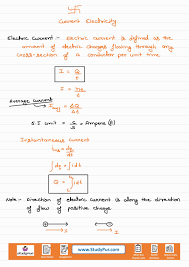 Current Electricity
Electric Current :- Electric current is defined as the
amount of electric charges flowing through any
cross-section of a conductor per unit time.
I = Q/t
I = ne/t
Average Current
Iavg = ΔQ/Δt
S.I Unit = C/s = Ampere (A)
Instantaneous Current
Iinst = dq/dt
∫dq = ∫Idt
Q = ∫Idt
Note :- Direction of electric current is along the direction
of flow of positive charge.
www.StudyFui.com